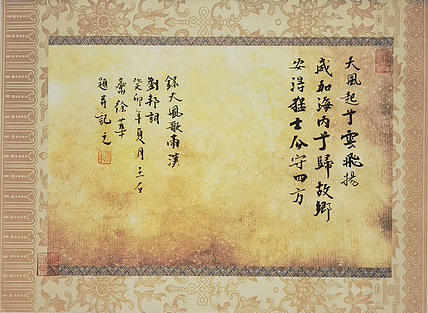 大風起兮雲飛揚
威加海内兮歸故鄉
安得猛士兮守四方
錄大風歌漢
劉邦詞
癸卯年夏月三石
齋徐
題并記之